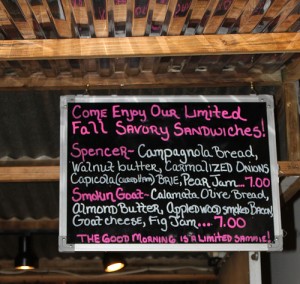 COME ENJOY OUR LIMITED
FALL SAVORY SANDWICHES!
SPENCER~ CAMPAGNOLA BREAD,
WALNUT BUTTER, CARMALIZED ONIONS
CAPICOLA (CURED HAM) BRIE, PEAR JAM... 7.00
SMOKIN GOAT~ CALAMATA OLIVE BREAD,
ALMOND BUTTER, APPLEWOOD SMOKED BACON,
GOAT CHEESE, FIG JAM... 7.00
THE GOOD MORNING IS A LIMITED SAMMIE!